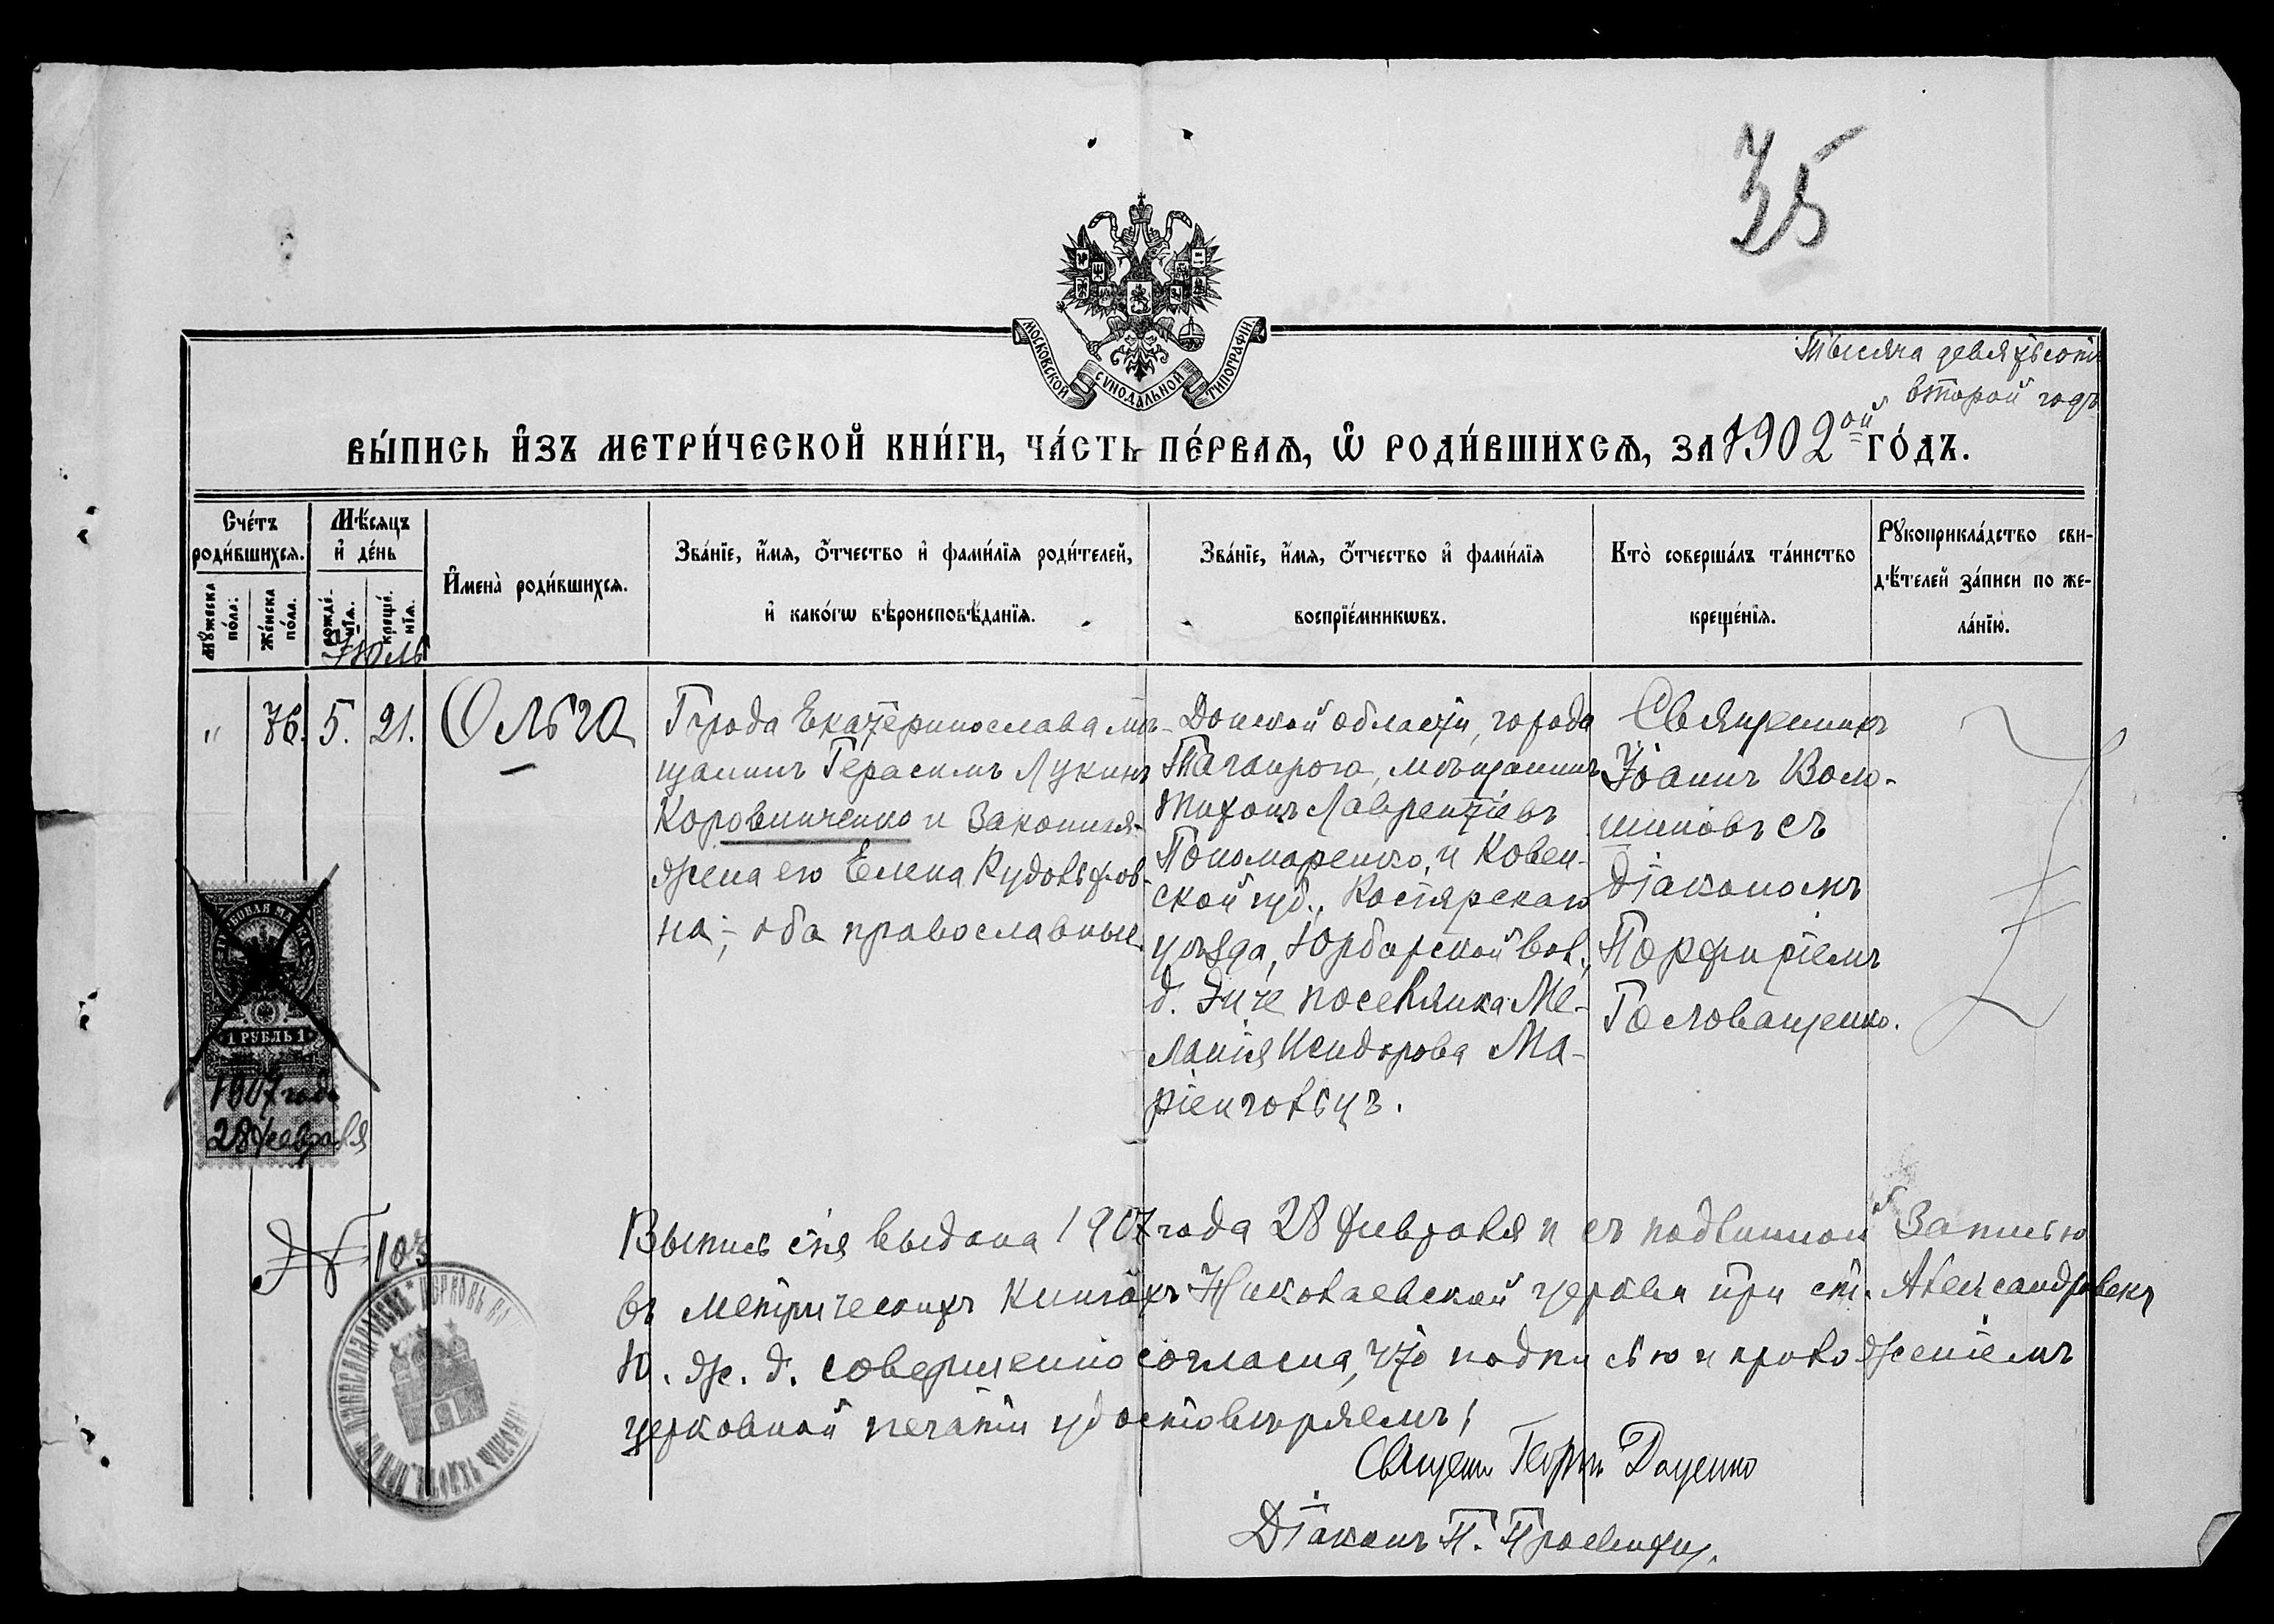 35
МОСКОВСКОЙ СѴНОДАЛЬНОЙ ТИПОГРАФІИ.
Тысяча девятьсотъ
второй годъ
ВЫ́ПИСЬ И҆ЗЪ МЕТРИ́ЧЕСКОЙ КНИ́ГИ, ЧА́СТЬ ПЕ́РВАѦ, Ѿ РОДИ́ВШИХСѦ, ЗА 1902ой ГО́ДЪ.
Сче́тъ
роди́вшихсѧ.
Мꙋ́жеска по́ла:
Же́нска по́ла.
Мѣ́сѧцъ
и҆ де́нь
рожде́нїѧ.
креще́нїѧ.
Іюль
И҆мена̀ роди́вшихсѧ.
Зва́нїе, и҆́мѧ, ѻ҆́тчество и҆ фами́лїѧ роди́телей,
и҆ како́гѡ вѣроисповѣ́данїѧ.
Зва́нїе, и҆́мѧ, ѻ҆́тчество и҆ фами́лїѧ
воспрїе́мникѡвъ.
Кто̀ соверша́лъ та́инство
креще́нїѧ.
Рꙋкоприкла́дство сви-
дѣ́телей за́писи по же-
ла́нїю.
" 76. 5. 21. Ольга
Города Екатеринослава мѣ-
щанинъ Герасимъ Лукинъ
Коровниченко и законная
жена его Елена Рудольфов-
на; оба православные.
Донской области, города
Таганрога, мѣщанинъ
Тихонъ Лаврентіевъ
Пономаренко, и Ковен-
ской губ., Костярскаго
уѣзда, Юрбарской вол.,
д. Энче поселянка Ме-
ланія Исидорова Ма-
ріенгольцъ.
Священникъ
Іоаннъ Воло-
шиновъ съ
діакономъ
Порфиріемъ
Головащенко.
ГЕРБОВАЯ МАРКА
1 РУБЛЬ 1
1907 года
28 февраля
№ 103
Выпись сія выдана 1907 года 28 февраля и съ подлинной записью
въ метрическихъ книгахъ Николаевской церкви при ст. Александровскъ
Ю. ж. д. совершенно согласна, что подписью и приложеніемъ
церковной печати удостовѣряемъ:
Священ. Георгій Доценко
Діаконъ П.